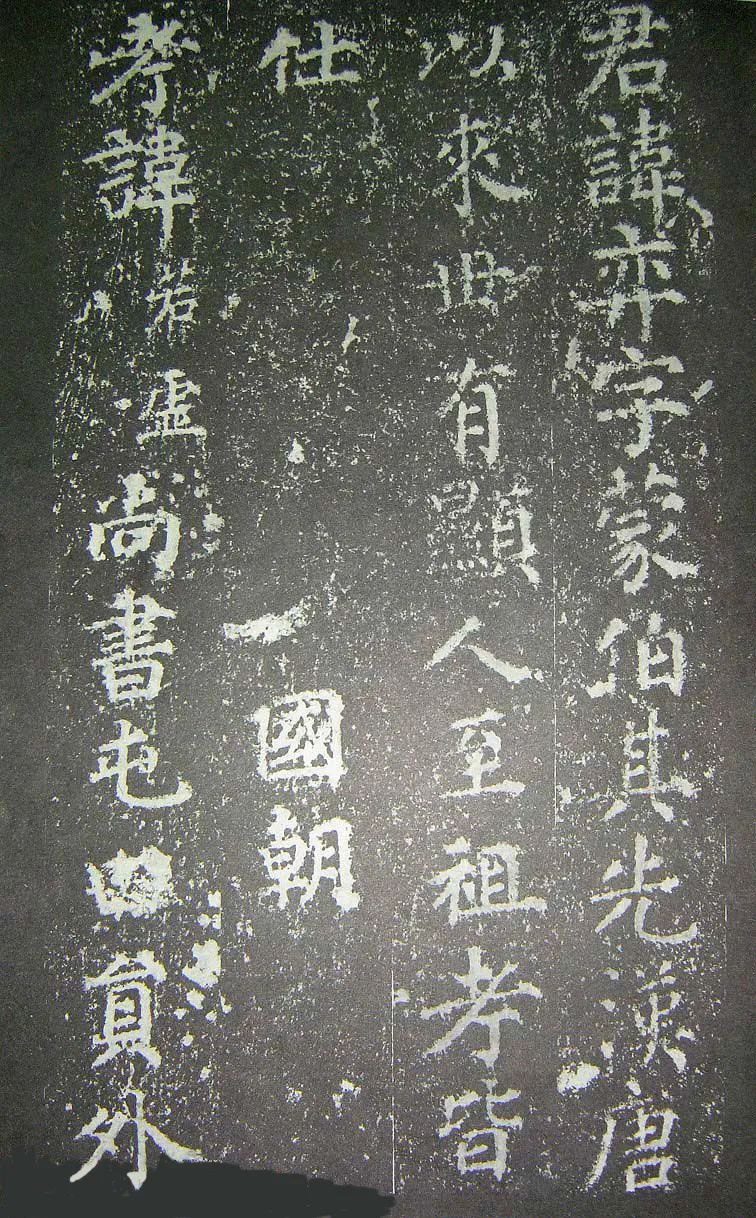 君諱弈字蒙伯其先漢唐
以來世有顯人至祖考皆
仕
國朝
考諱若虛尚書屯田員外